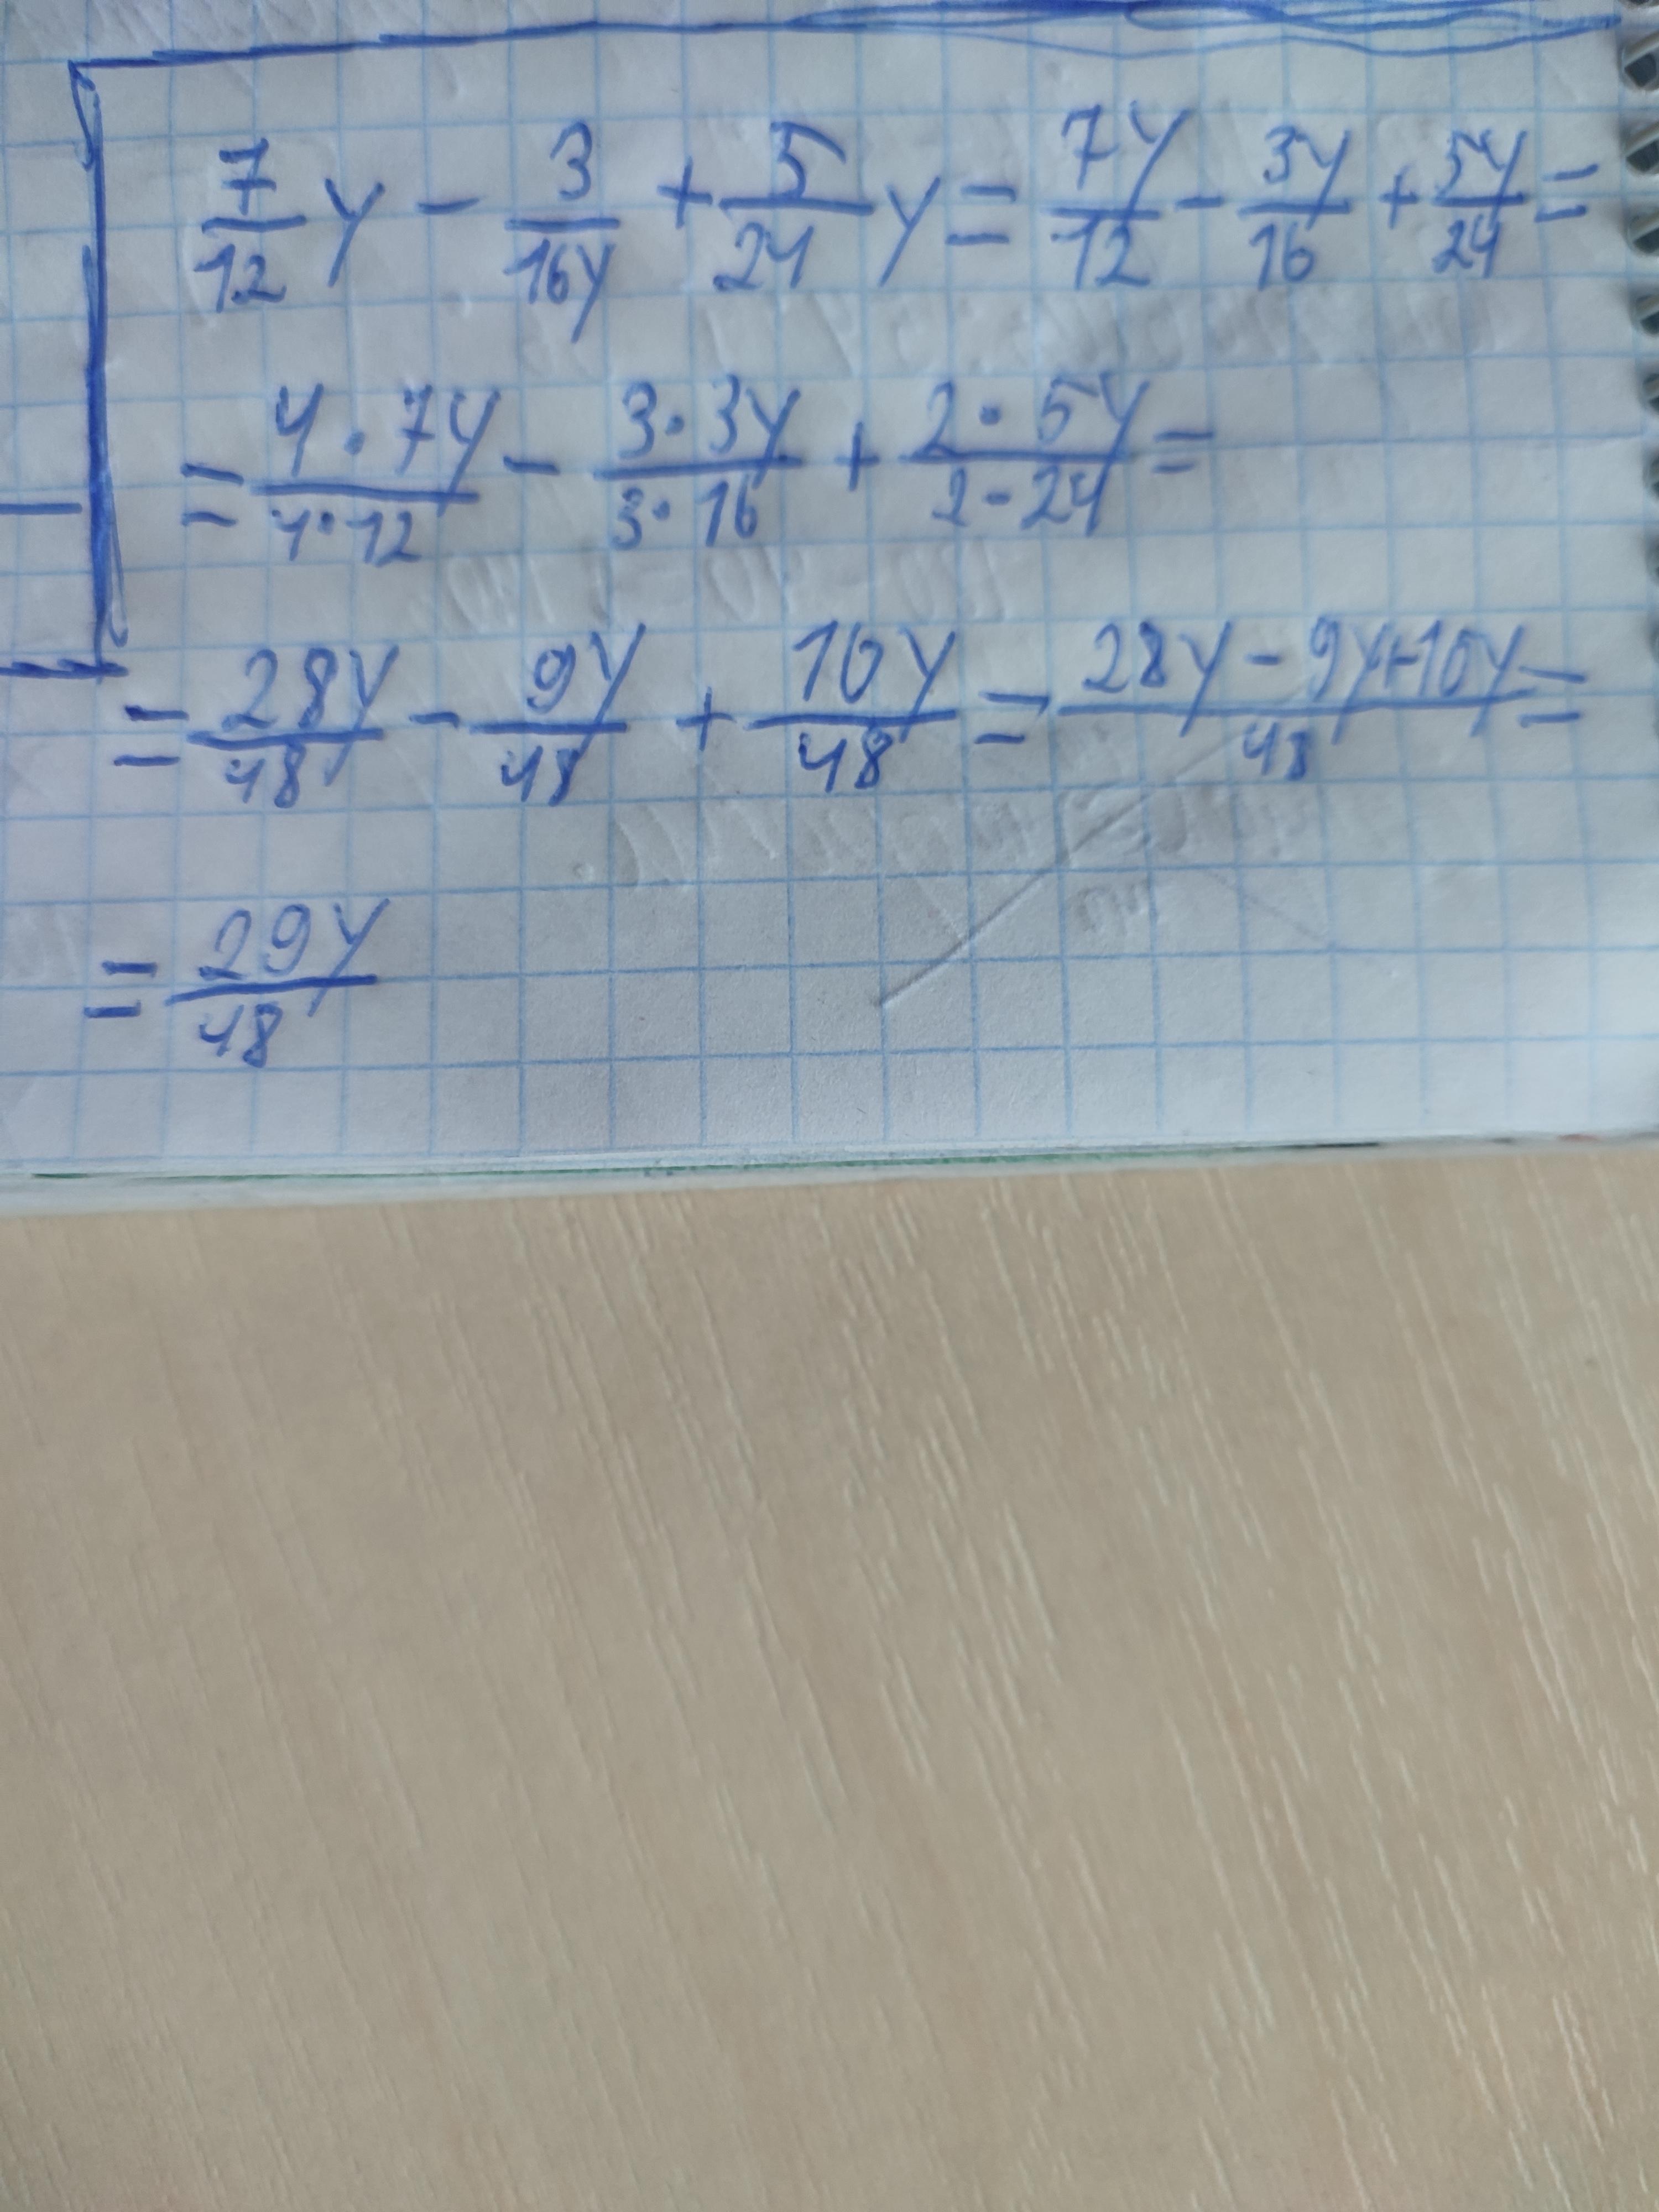 7/12 y - 3/16y + 5/24 y = 7y/12 - 3y/16 + 5y/24 =
= 4·7y/4·12 - 3·3y/3·16 + 2·5y/2·24 =
= 28y/48 - 9y/48 + 10y/48 = 28y - 9y + 10y/48 =
= 29y/48